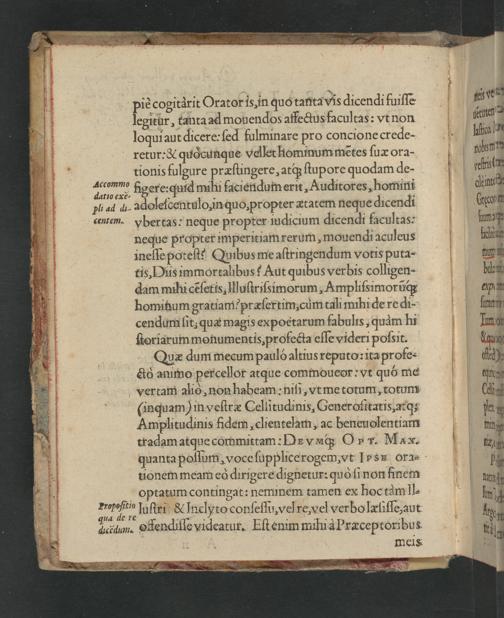 piè cogitârit Orator is, in quo tanta vis dicendi fuisse
legitur, tanta ad mouendos affectus facultas: vt non
loqui aut dicere: sed fulminare pro concione crede-
retur: & quòcunque vellet hominum mẽtes suæ ora-
tionis fulgure præstingere, atq; stupore quodam de-
Accommo
datio exẽ-
pli ad di-
centem.
figere: quid mihi faciendum erit, Auditores, homini
adolescentulo, in quo, propter ætatem neque dicendi
vbertas: neque propter iudicium dicendi facultas:
neque propter imperitiam rerum, mouendi aculeus
inesse potest? Quibus me astringendum votis puta-
tis, Diis immortalibus? Aut quibus verbis colligen-
dam mihi cẽsetis, Illustrissimorum, Amplissimorũq;
hominum gratiam? præsertim, cùm tali mihi de re di-
cendum sit, quæ magis ex poëtarum fabulis, quàm hi
storiarum monumentis, profecta esse videri possit.
Quæ dum mecum pauló altius reputo: ita profe-
ctò animo percellor atque commoueor: vt quó me
vertam alió, non habeam: nisi, vt me totum, totum
(inquam) in vestræ Cellitudinis, Generositatis, atq;
Amplitudinis fidem, clientelam, ac beneuolentiam
tradam atque committam: DEVMQ; OPT. MAX.
quanta possum, voce supplice rogem, vt IPSE ora-
tionem meam eò dirigere dignetur: quò si non finem
optatum contingat: neminem tamen ex hoc tàm Il-
Propositio
qua de re
dicẽdum.
lustri & Inclyto consessu, vel re, vel verbo læsisse, aut
offendisse videatur. Est enim mihi à Præceptoribus
meis